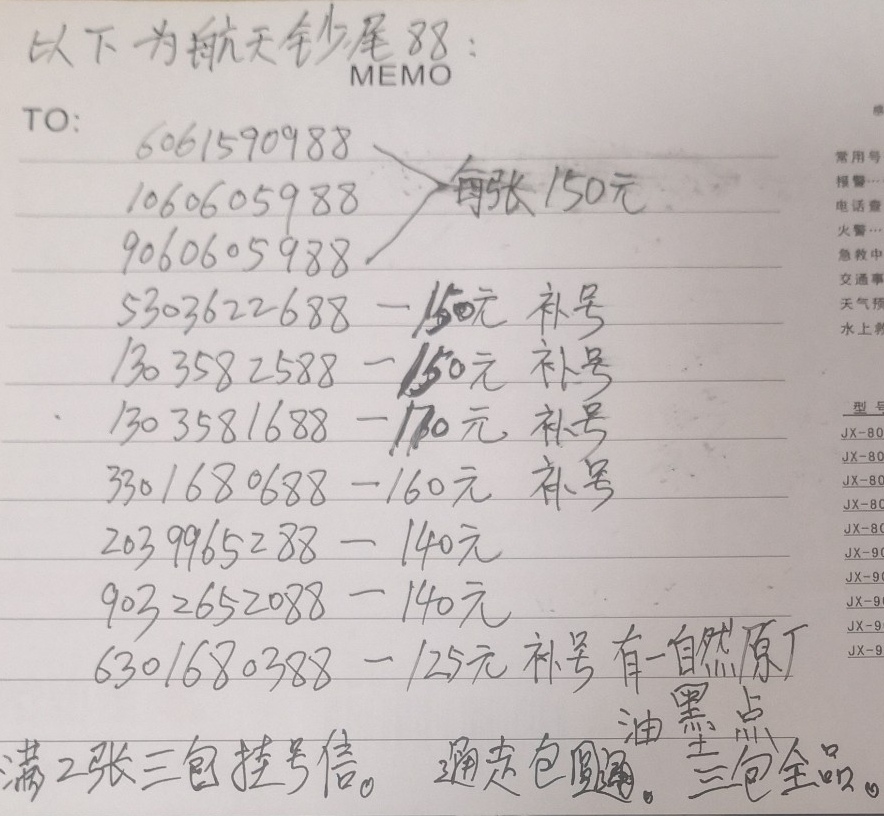 以下为航天钞尾88：
MEMO
TO:
6061590988
1060605988 每张150元
9060605988
5303622688 — 150元 补号
1303582588 — 150元 补号
1303581688 — 170元 补号
3301680688 — 160元 补号
2039965288 — 140元
9032652088 — 140元
6301680388 — 125元 补号 有一自然原厂
油墨点
满2张三包挂号信。 通走包圆通。 三包全品。
常用号
报警…
电话查
火警…
急救中
交通事
天气预
水上救
型号
JX-80
JX-80
JX-80
JX-80
JX-80
JX-90
JX-90
JX-9
JX-9
JX-9